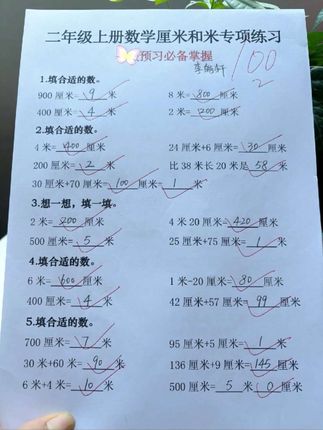 二年级上册数学厘米和米专项练习
预习必备掌握
100
1.填合适的数。
900厘米=9米 8米=800厘米
400厘米=4米 2米=200厘米
2.填合适的数。
4米=400厘米 24厘米+6厘米=30厘米
200厘米=2米 比38米长20米是58米
30厘米+70厘米=100厘米=1米
3.想一想，填一填。
2米=200厘米 4米20厘米=420厘米
500厘米=5米 25厘米+75厘米=1米
4.填合适的数。
6米=600厘米 1米-20厘米=80厘米
400厘米=4米 42厘米+57厘米=99厘米
5.填合适的数。
700厘米=7米 95厘米+5厘米=1米
30米+60米=90米 136厘米+9厘米=145厘米
6米+4米=10米 500厘米=5米0厘米